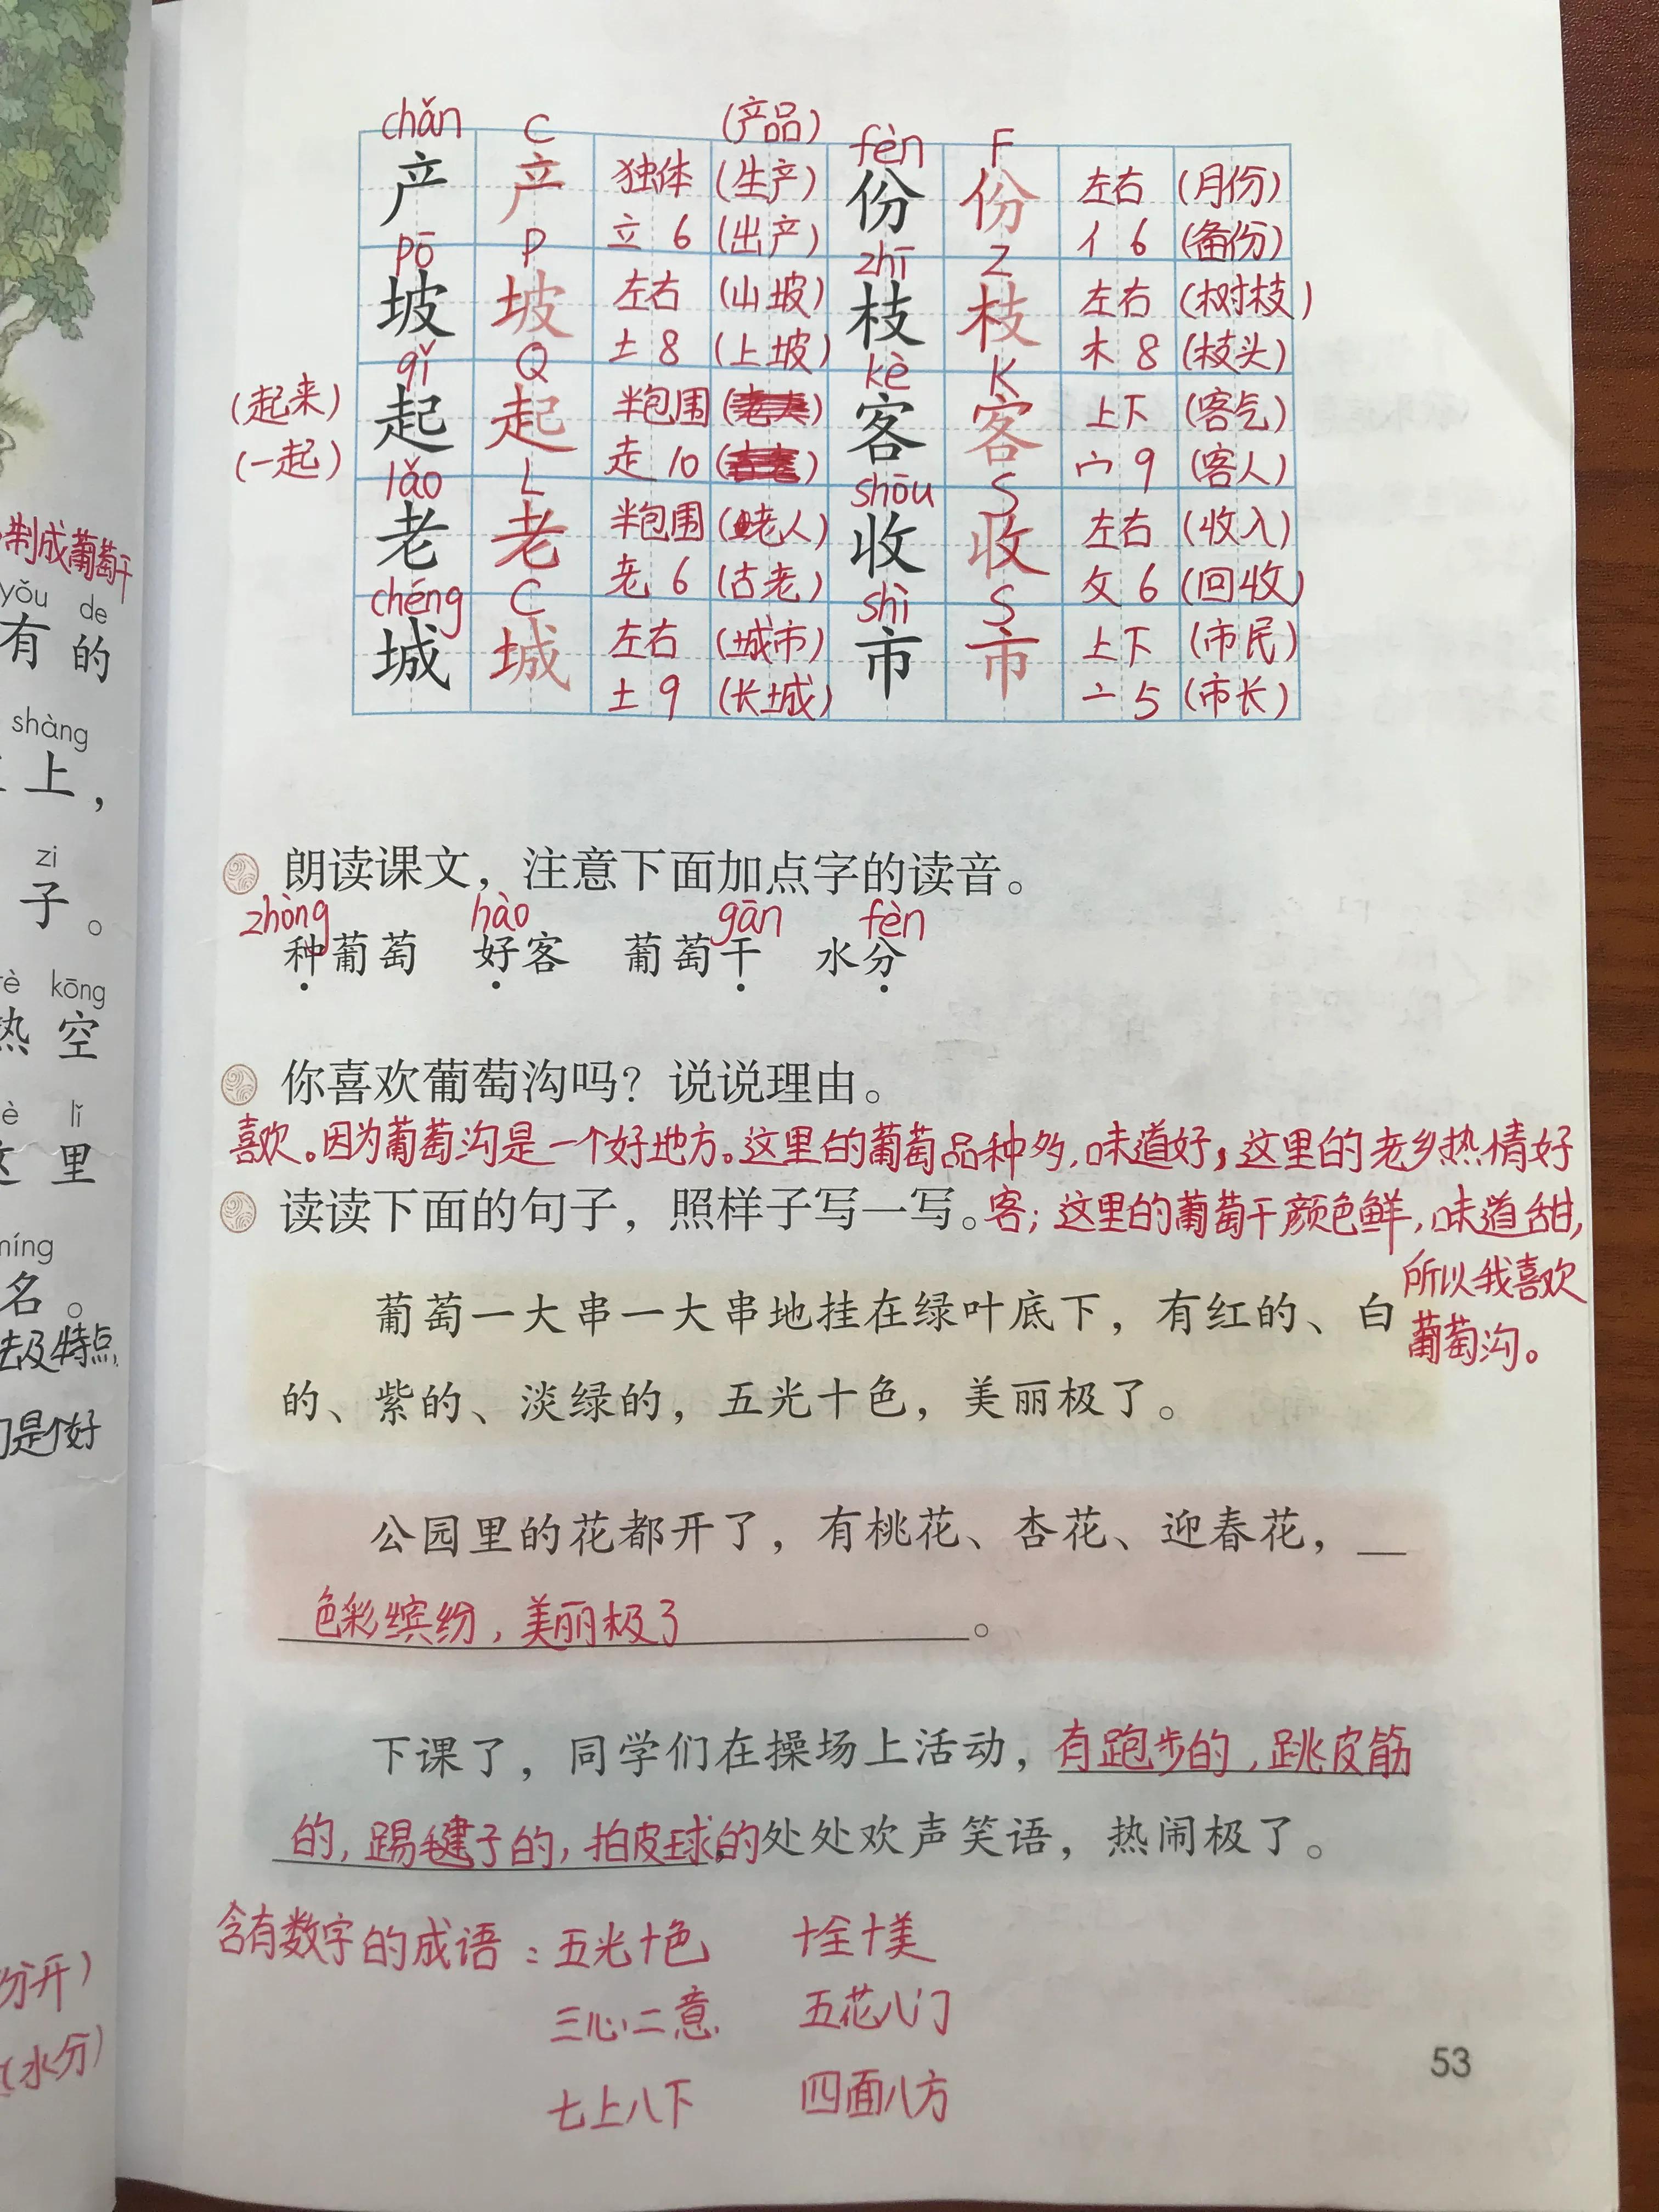 chǎn C (产品) fèn F
产 产 独体 (生产) 份 份 左右 (月份)
立 6 (出产) 亻 6 (备份)
pō P zhī Z
坡 坡 左右 (山坡) 枝 枝 左右 (树枝)
土 8 (上坡) 木 8 (枝头)
qǐ Q kè K
(起来) 起 起 半包围 客 客 上下 (客气)
(一起) 走 10 宀 9 (客人)
lǎo L shōu S
老 老 半包围 (老人) 收 收 左右 (收入)
老 6 (古老) 攵 6 (回收)
chéng C shì S
城 城 左右 (城市) 市 市 上下 (市民)
土 9 (长城) 亠 5 (市长)
制成葡萄干
yǒu de
有 的
shàng
上，
zi
子。
kōng
热 空
lǐ
这 里
míng
名。
法及特点
是个好
分开)
(水分)
朗读课文，注意下面加点字的读音。
zhòng hào gān fèn
种葡萄 好客 葡萄干 水分
你喜欢葡萄沟吗？说说理由。
喜欢。因为葡萄沟是一个好地方。这里的葡萄品种多，味道好，这里的老乡热情好
读读下面的句子，照样子写一写。客；这里的葡萄干颜色鲜，味道甜，
所以我喜欢
葡萄沟。
葡萄一大串一大串地挂在绿叶底下，有红的、白
的、紫的、淡绿的，五光十色，美丽极了。
公园里的花都开了，有桃花、杏花、迎春花，
色彩缤纷，美丽极了。
下课了，同学们在操场上活动，有跑步的，跳皮筋
的，踢毽子的，拍皮球的，处处欢声笑语，热闹极了。
含有数字的成语：五光十色 十全十美
三心二意 五花八门
七上八下 四面八方
53